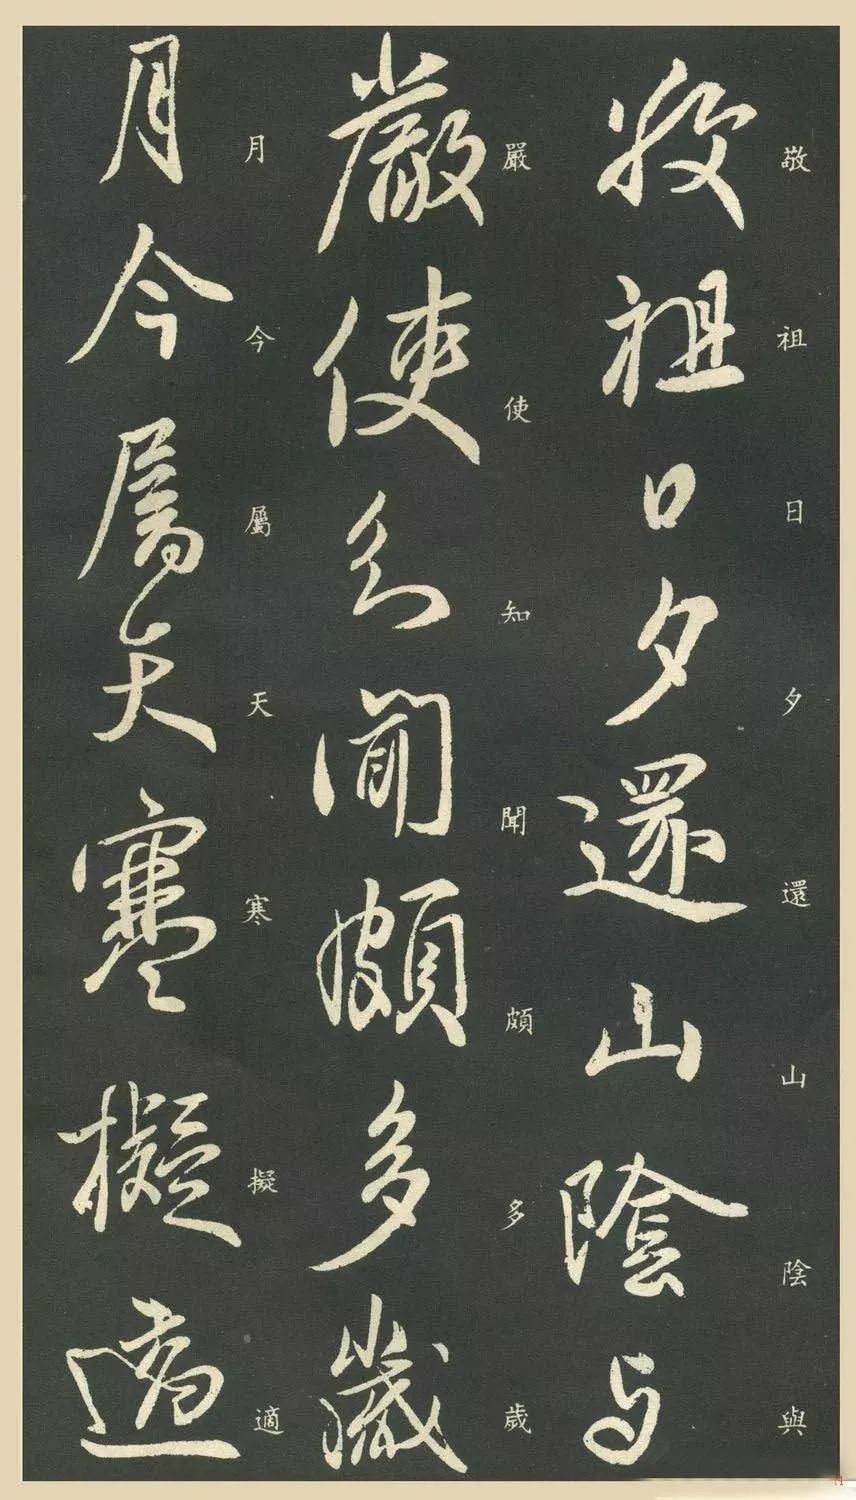 敬祖日夕還山陰與
嚴使知聞頗多歲
月今屬天寒擬適